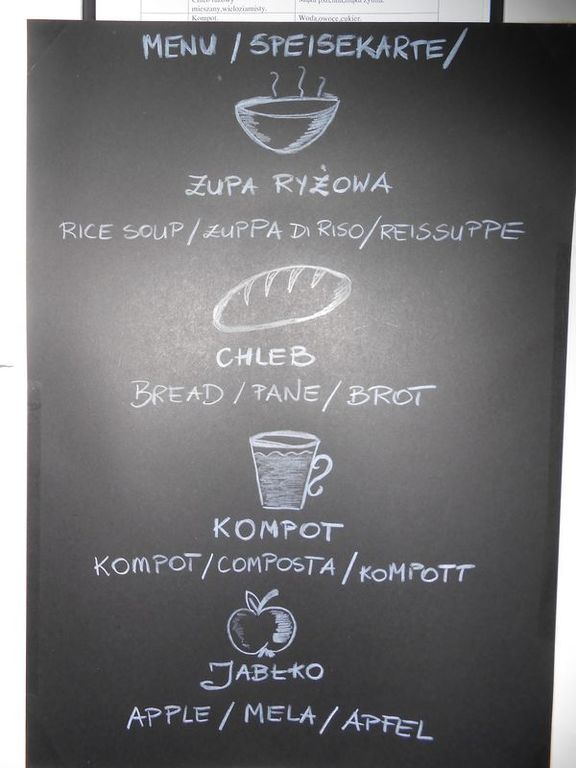 mieszany,wieloziarnisty.
Kompot. Woda,owoce,cukier.
MENU / SPEISEKARTE /
ZUPA RYŻOWA
RICE SOUP / ZUPPA DI RISO / REISSUPPE
CHLEB
BREAD / PANE / BROT
KOMPOT
KOMPOT / COMPOSTA / KOMPOTT
JABŁKO
APPLE / MELA / APFEL